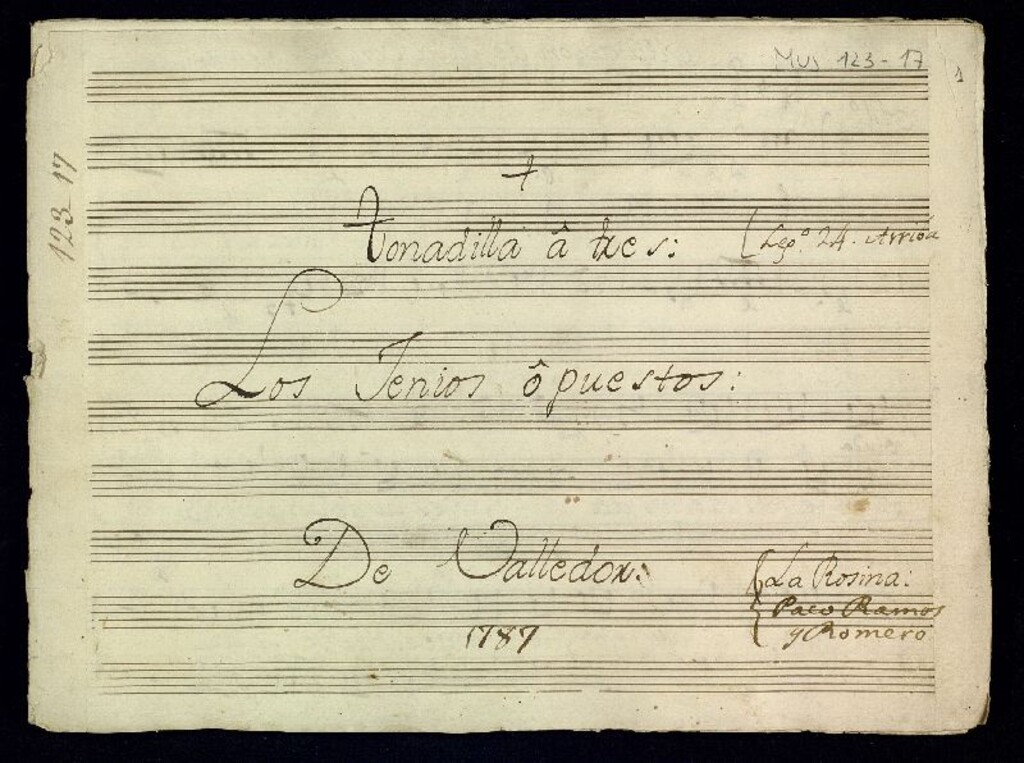 Mus 123-17
1
123-17
+
tonadilla â tres:
(Legº 24. Arriba
Los Jenios ôpuestos:
De Valledor:
La Rosina:
Paco Ramos
y Romero
1787